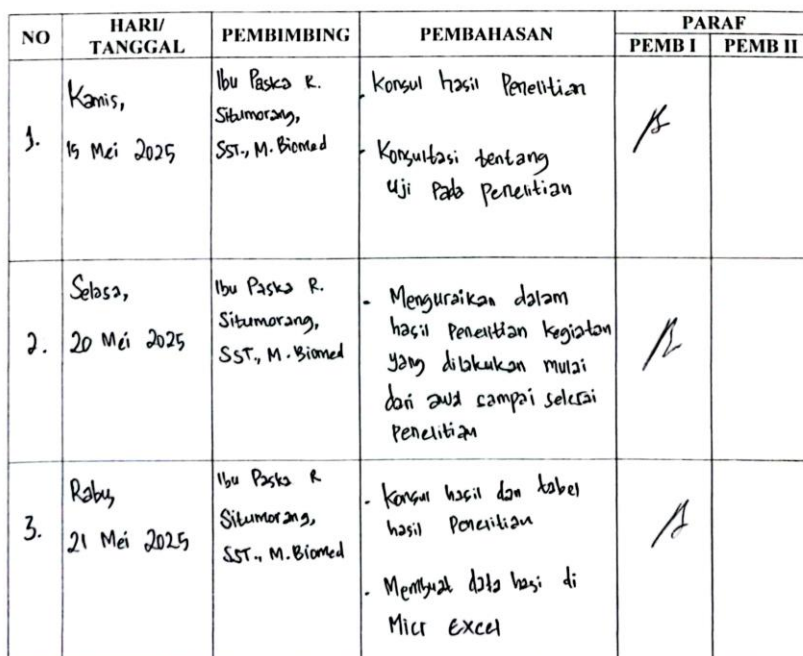 NO HARI/ TANGGAL PEMBIMBING PEMBAHASAN PARAF
PEMB I PEMB II
1.
Kamis,
15 Mei 2025
Ibu Paska R.
Situmorang,
SST., M. Biomed
- Konsul hasil Penelitian
- Konsultasi tentang
Uji Pada Penelitian
2.
Selasa,
20 Mei 2025
Ibu Paska R.
Situmorang,
SST., M. Biomed
- Menguraikan dalam
hasil Penelitian kegiatan
yang dilakukan mulai
dari awal sampai selesai
Penelitian
3.
Rabu,
21 Mei 2025
Ibu Paska R
Situmorang,
SST., M. Biomed
- Konsul hasil dan tabel
hasil Penelitian
- Membuat data hasi di
Micr Excel